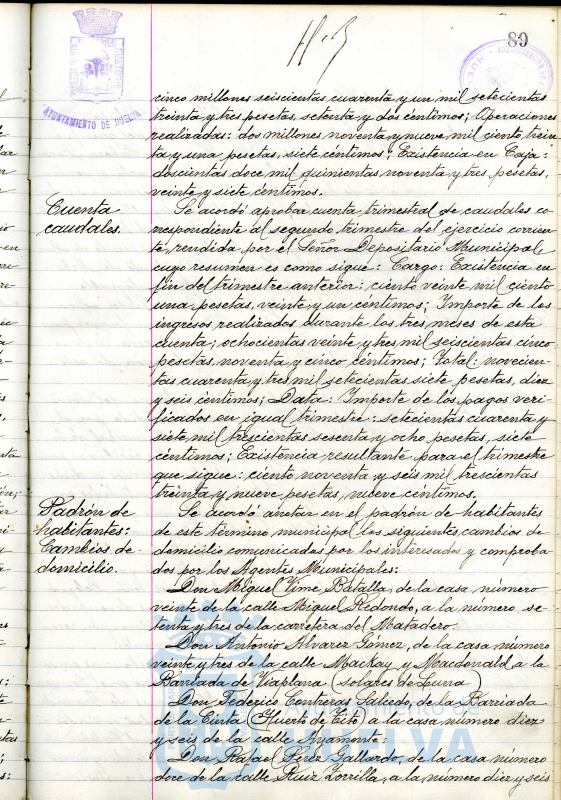 H-3
89
AYUNTAMIENTO DE HUELVA
cinco millones seiscientas cuarenta y un mil setecientas
treinta y tres pesetas, setenta y dos céntimos; Operaciones
realizadas: dos millones noventa y nueve mil ciento trein
ta y una pesetas, siete céntimos; Existencia en Caja:
doscientas doce mil quinientas noventa y tres pesetas,
veinte y siete céntimos.
Cuenta
caudales.
Se acordó aprobar cuenta trimestral de caudales co-
rrespondiente al segundo trimestre del ejercicio corrien
te, rendida por el Señor Depositario Municipal,
cuyo resumen es como sigue: Cargo: Existencia en
fin del trimestre anterior: ciento veinte mil ciento
una pesetas, veinte y un céntimos; Importe de los
ingresos realizados durante los tres meses de esta
cuenta; ochocientas veinte y tres mil seiscientas cinco
pesetas, noventa y cinco céntimos; Total: novecien-
tas cuarenta y tres mil setecientas siete pesetas, diez
y seis céntimos; Data: Importe de los pagos veri-
ficados en igual trimestre: setecientas cuarenta y
siete mil trescientas sesenta y ocho pesetas, siete
céntimos; Existencia resultante para el trimestre
que sigue: ciento noventa y seis mil trescientas
treinta y nueve pesetas, nueve céntimos.
Padrón de
habitantes:
Cambios de
domicilio.
Se acordó anotar en el padrón de habitantes
de este término municipal los siguientes cambios de
domicilio comunicados por los interesados y comproba
dos por los Agentes Municipales:
Don Miguel Yime Batalla, de la casa número
veinte de la calle Miguel Redondo, a la número se-
tenta y tres de la carretera del Matadero.
Don Antonio Alvarez Gómez, de la casa número
veinte y tres de la calle Mackay y Macdonald a la
Barriada de Viaplana (solares de Luna)
Don Federico Contreras Salcedo, de la Barriada
de la Cinta (Huerto de Tito) a la casa número diez
y seis de la calle Ayamonte.
Don Rafael Pérez Gallardo, de la casa número
doce de la calle Ruiz Zorrilla, a la número diez y seis